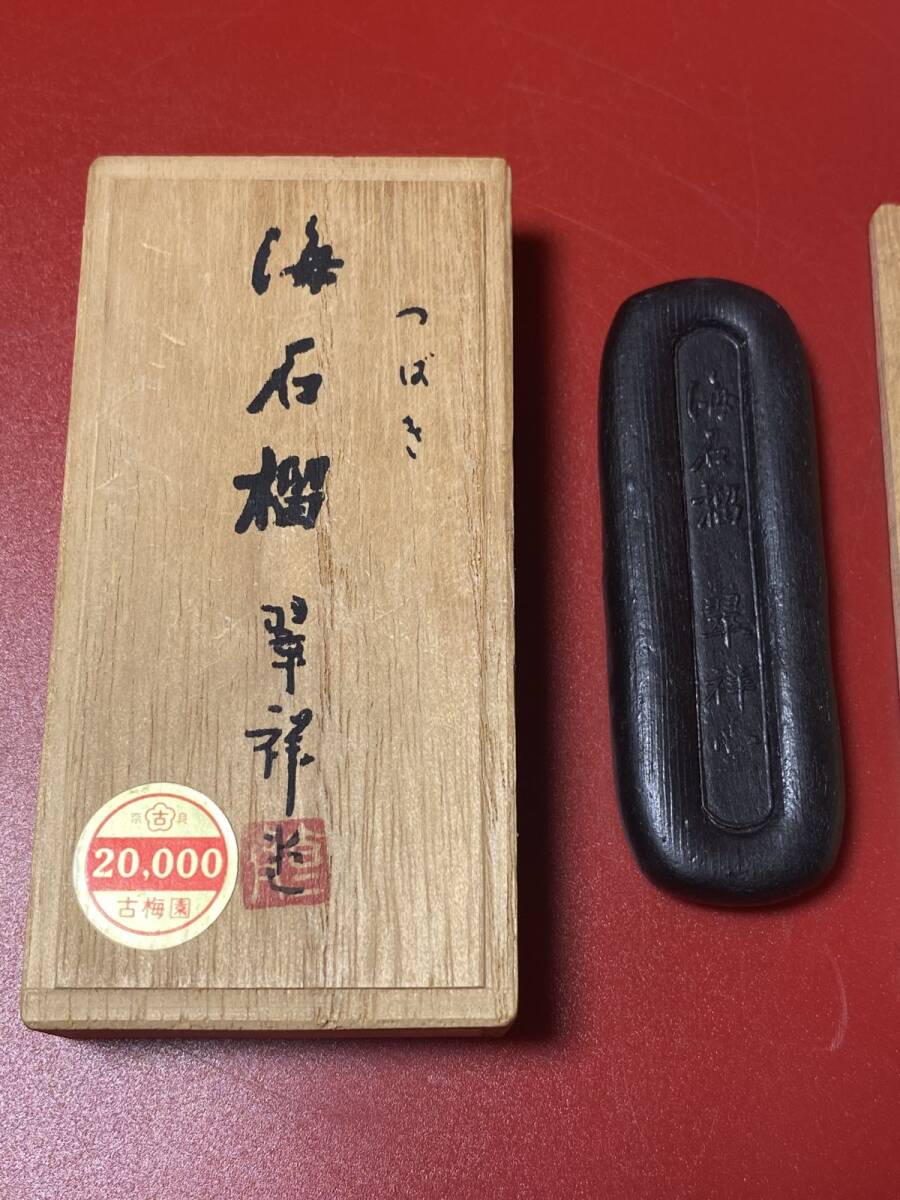 つばき
海石榴 翠祥造
奈 古 良
20,000
古梅園
海石榴 翠祥